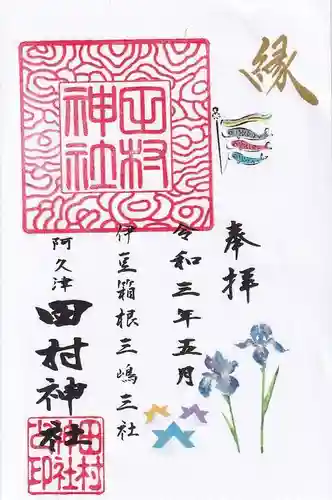 縁
奉拝
令和三年五月
伊豆箱根三嶋三社
阿久津
田村神社
田村
神社
田村
神社
之印